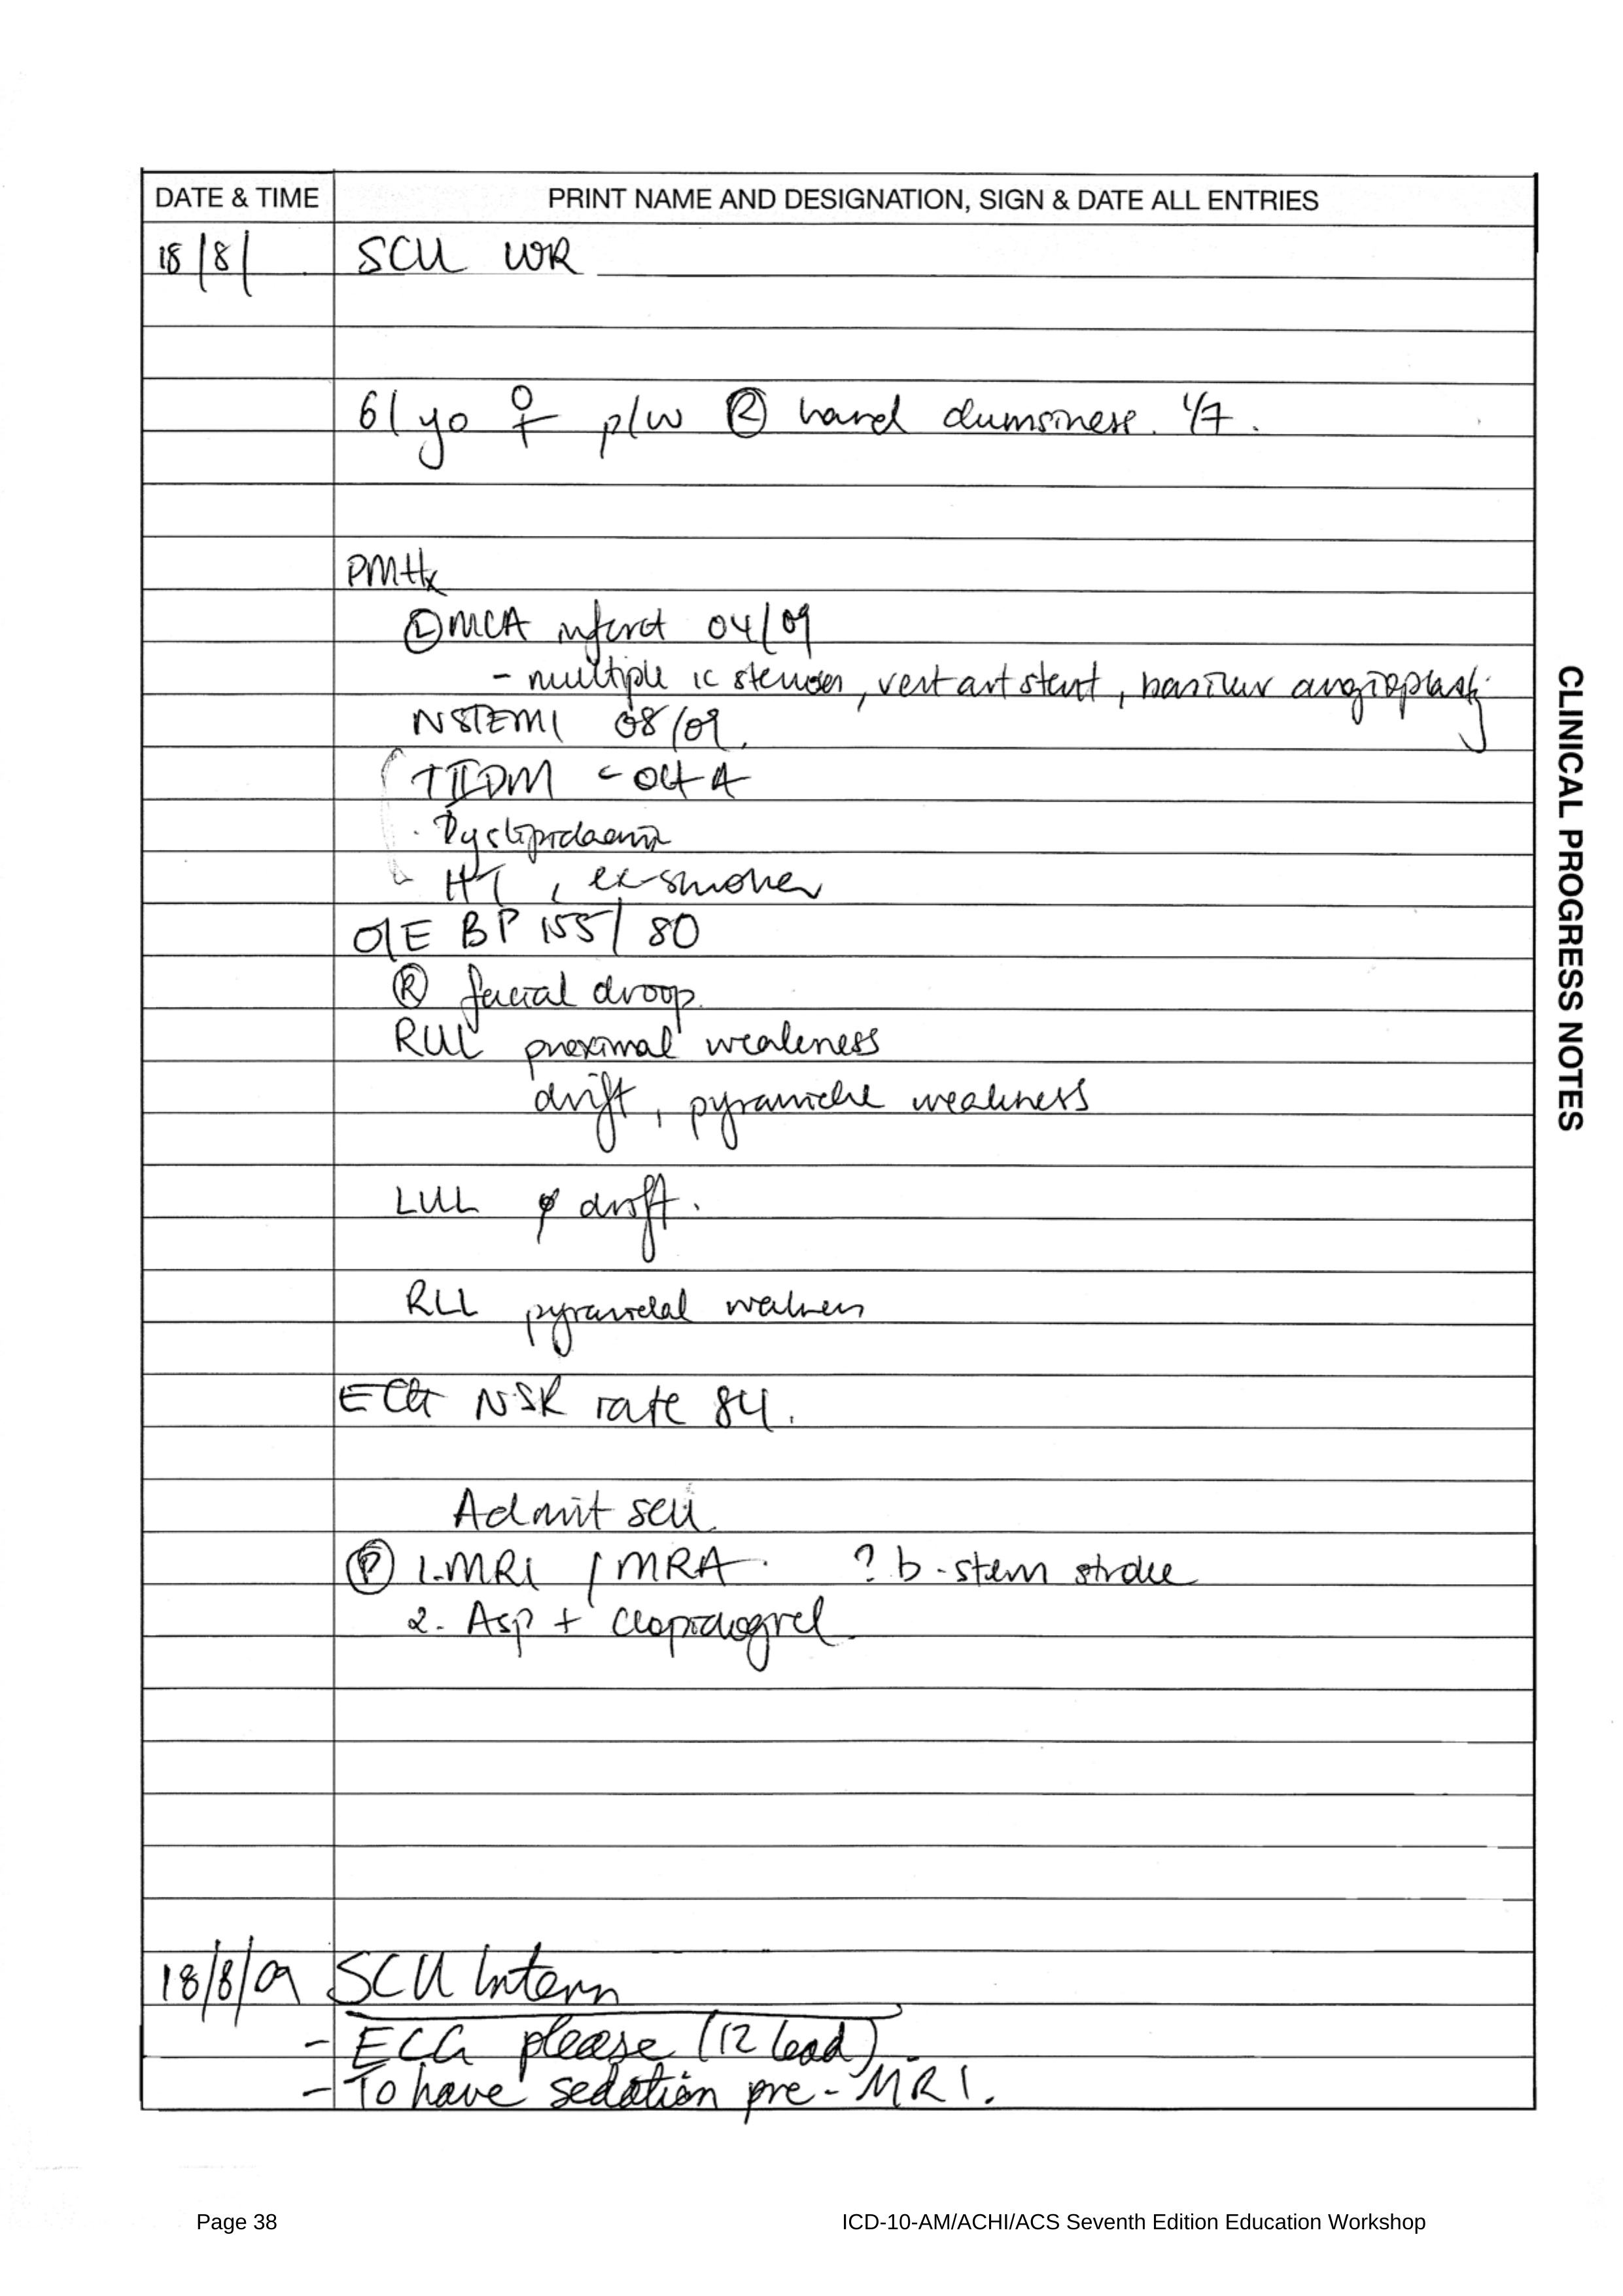 DATE & TIME PRINT NAME AND DESIGNATION, SIGN & DATE ALL ENTRIES
18/8/ SCU WR
61 yo ♀ p/w Ⓡ hand clumsiness. 1/7.
PMHx
Ⓛ MCA infarct 04/09
- multiple ic stenoses, vert art stent, basilar angioplasty
NSTEMI 08/09.
TIIDM - OHA
Dyslipidaemia
HT, ex-smoker
O/E BP 155/80
Ⓡ facial droop.
RUL proximal weakness
drift, pyramidal weakness
LUL φ drift.
RLL pyramidal weakness
ECG NSR rate 84.
Admit SCU.
Ⓟ 1. MRI / MRA. ? b-stem stroke
2. Asp + Clopidogrel
18/8/09 SCU Intern
- ECG please (12 lead).
- To have sedation pre-MRI.
CLINICAL PROGRESS NOTES
Page 38 ICD-10-AM/ACHI/ACS Seventh Edition Education Workshop